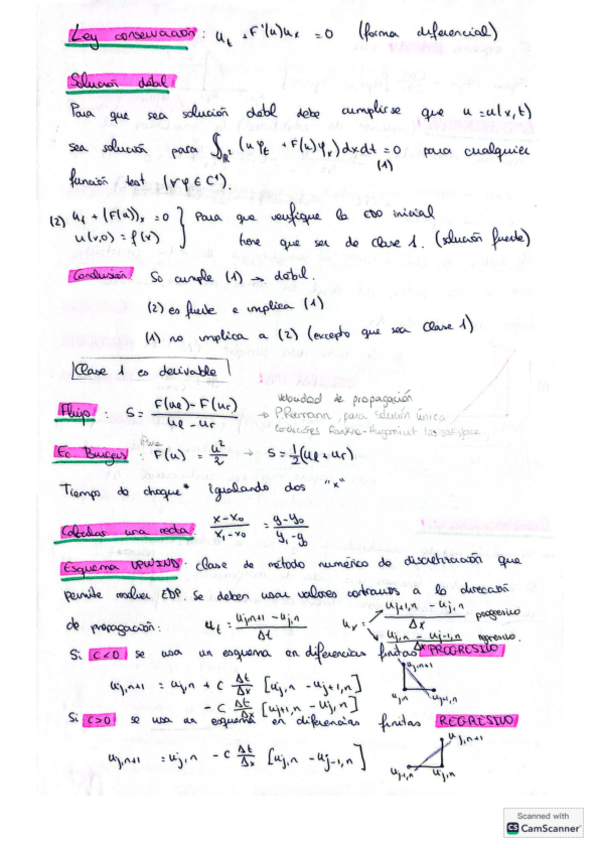 Ley conservación : u_t + F'(u)u_x = 0 (forma diferencial)
Solución débil
Para que sea solución débil debe cumplirse que u = u(x,t)
sea solución para ∫_ℝ² (uφ_t + F(u)φ_x) dxdt = 0 para cualquier
(1)
función test (∀φ ∈ C¹).
(2) u_t + (F(u))_x = 0 } Para que verifique la EDO inicial
u(x,0) = f(x) tiene que ser de clase 1. (solución fuerte)
Conclusión So cumple (1) → débil.
(2) es fuerte e implica (1)
(1) no implica a (2) (excepto que sea clase 1)
Clase 1 es derivable
velocidad de propagación
Flujo : S = (F(u_l) - F(u_r)) / (u_l - u_r) → P. Riemann, para solución única
condiciones Rankine-Hugoniot las satisface
Ec Burgers : F(u) = u²/2 → S = ½(u_l + u_r)
Tiempo de choque* igualando dos "x"
Calcular una recta (x - x_0)/(x_1 - x_0) = (y - y_0)/(y_1 - y_0)
Esquema UPWIND: clase de método numérico de discretización que
permite resolver EDP. Se deben usar valores contrarios a la dirección
de propagación: u_t = (u_j,n+1 - u_j,n)/Δt u_x = (u_j+1,n - u_j,n)/Δx progresivo
(u_j,n - u_j-1,n)/Δx regresivo.
Si C<0 se usa un esquema en diferencias finitas PROGRESIVO
u_j,n+1 = u_j,n + C Δt/Δx [u_j,n - u_j+1,n] u_j,n+1
- C Δt/Δx [u_j+1,n - u_j,n] u_j,n u_j+1,n
Si C>0 se usa un esquema en diferencias finitas REGRESIVO
u_j,n+1 = u_j,n - C Δt/Δx [u_j,n - u_j-1,n] u_j,n+1
u_j-1,n u_j,n
Scanned with
CS CamScanner